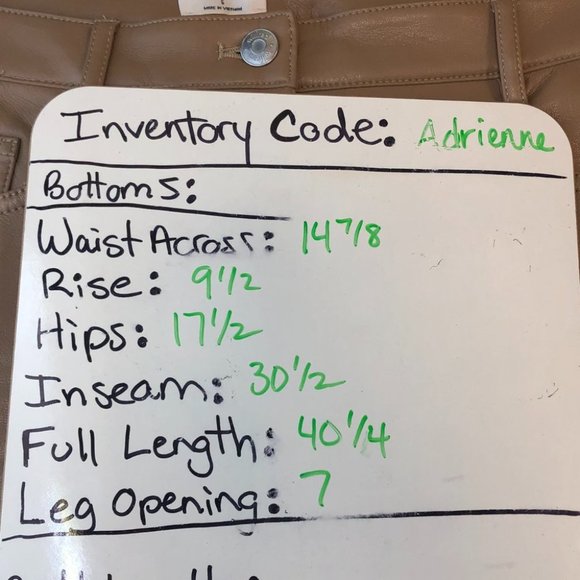 MADE IN VIETNAM
Inventory Code: Adrienne
Bottoms:
Waist Across: 14 7/8
Rise: 9 1/2
Hips: 17 1/2
Inseam: 30 1/2
Full Length: 40 1/4
Leg Opening: 7